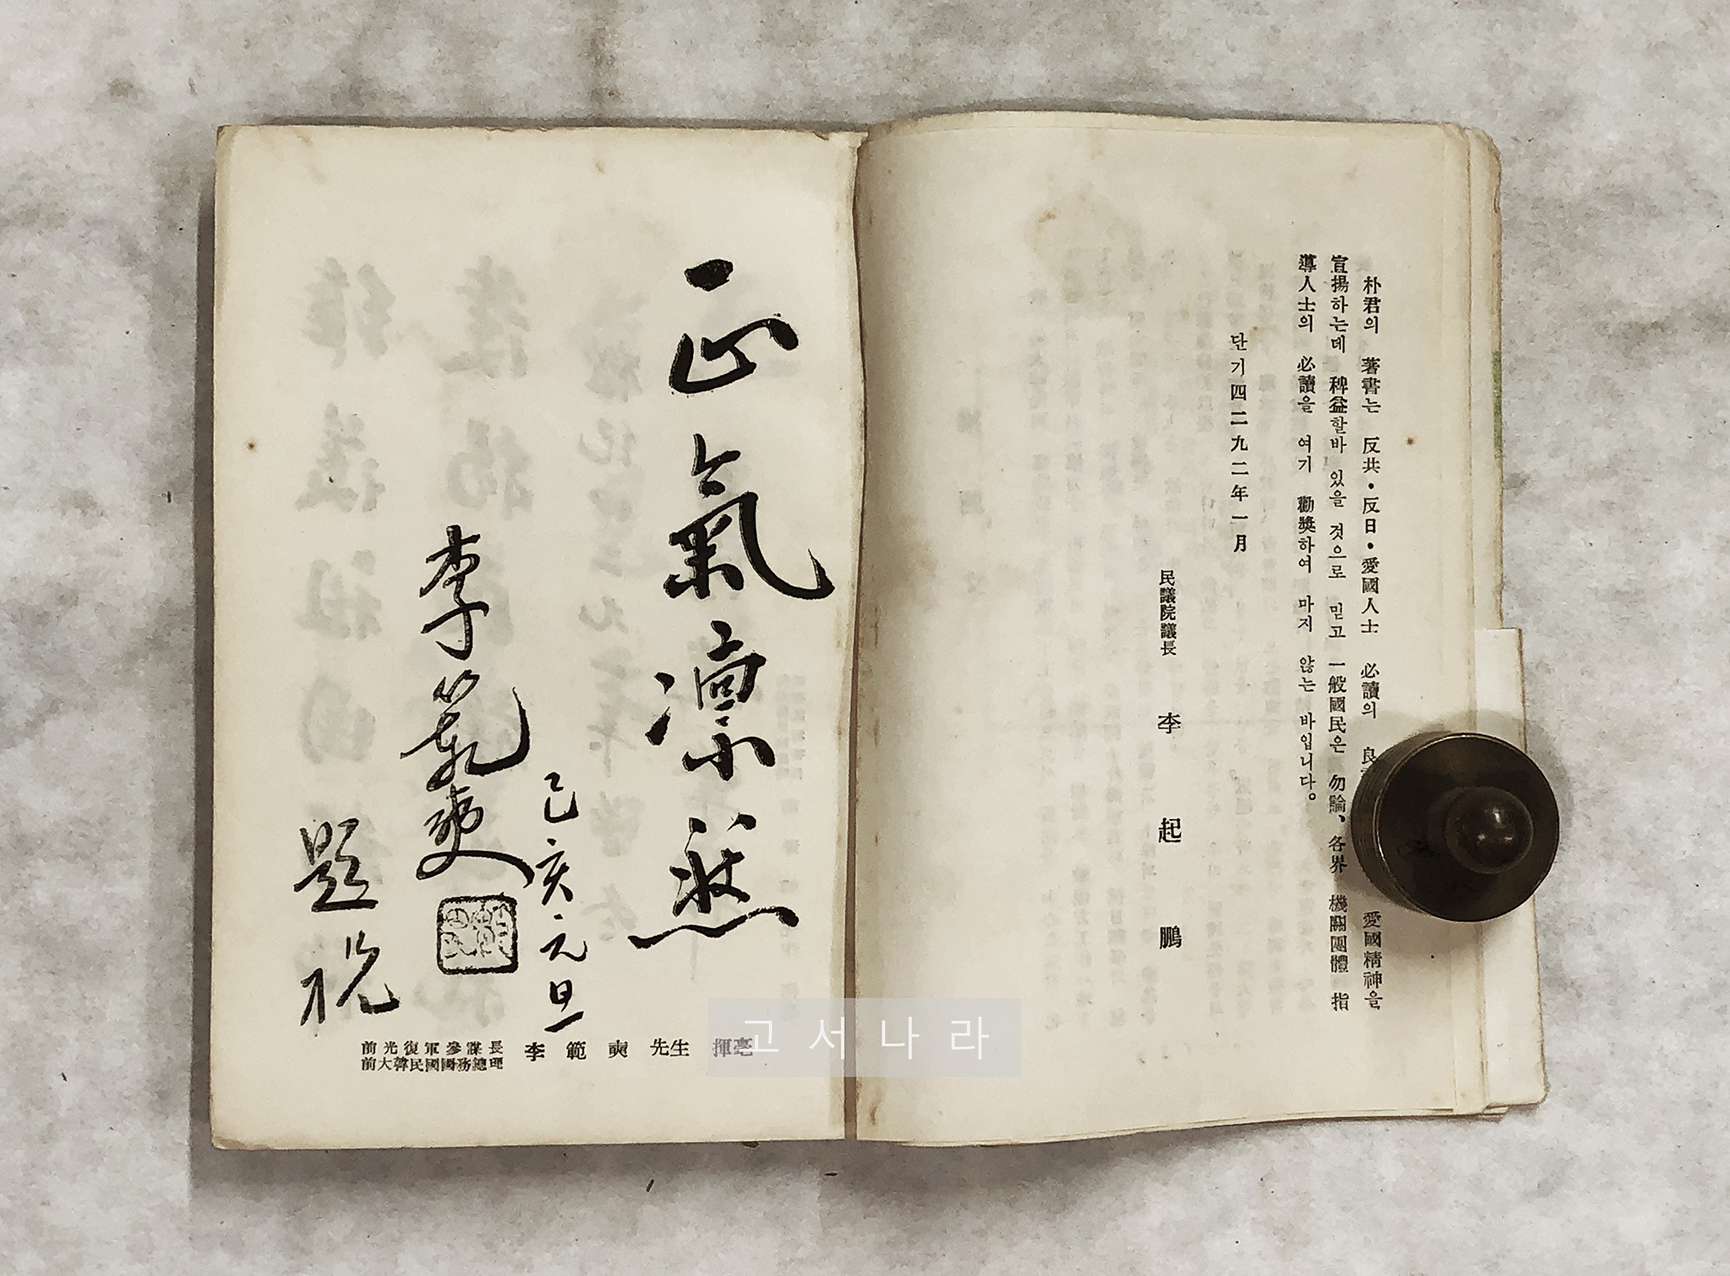 朴君의 著書는 反共·反日·愛國人士 必讀의 良 愛國精神을
宣揚하는데 稗益할바 있을 것으로 믿고 一般國民은 勿論、各界 機關團體 指
導人士의 必讀을 여기 勸奬하여 마지 않는 바입니다。
단기四二九二年一月
民議院議長 李起鵬
正氣凜然
己亥元旦
李範奭
題祝
前光復軍參謀長
前大韓民國國務總理
李範奭 先生 揮毫
고서나라